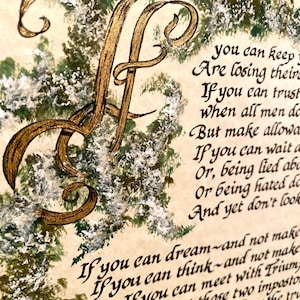 If
you can keep
Are losing their
If you can trust
when all men do
But make allow
If you can wait a
Or, being lied abo
Or being hated, d
And yet don't look
If you can dream~and not make
If you can think~and not make
If you can meet with Trium
those two impostor